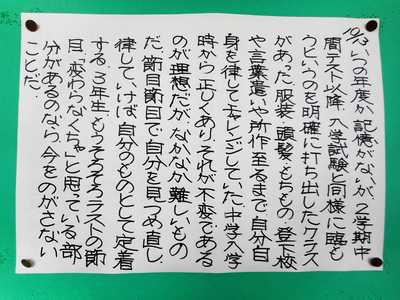 10/2 いつの年度か記憶がないが、2学期中
間テスト以降、入学試験と同様に臨も
うというのを明確に打ち出したクラス
があった。服装、頭髪、もちもの、登下校
や言葉遣いや所作至るまで自分自
身を律してチャレンジしていた。中学入学
時から正しくあり、それが不変である
のが理想だが、なかなか難しいもの
だ。節目節目で自分を見つめ直し、
律していけば、自分のものとして定着
する。3年生、もうそろそろラストの節
目。「変わらなくちゃ」と思っている部
分があるのなら、今をのがさない
ことだ。